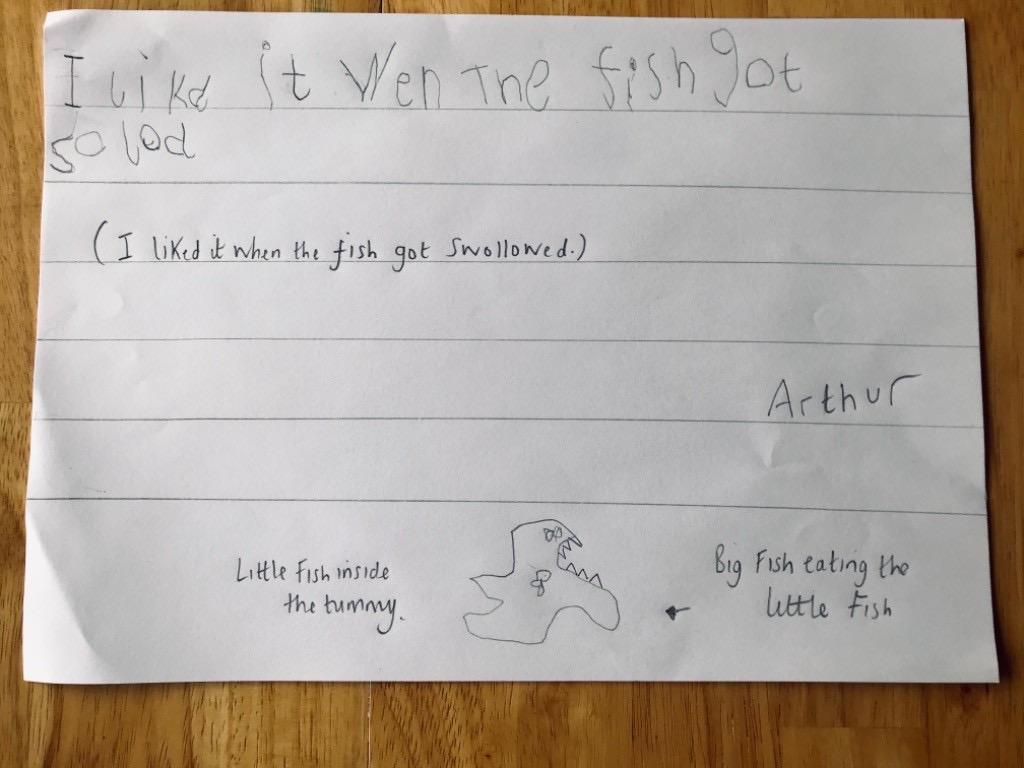 I likd it Wen The fish got
solod
(I liked it when the fish got swollowed.)
Arthur
Little Fish inside
the tummy.
Big Fish eating the
little Fish